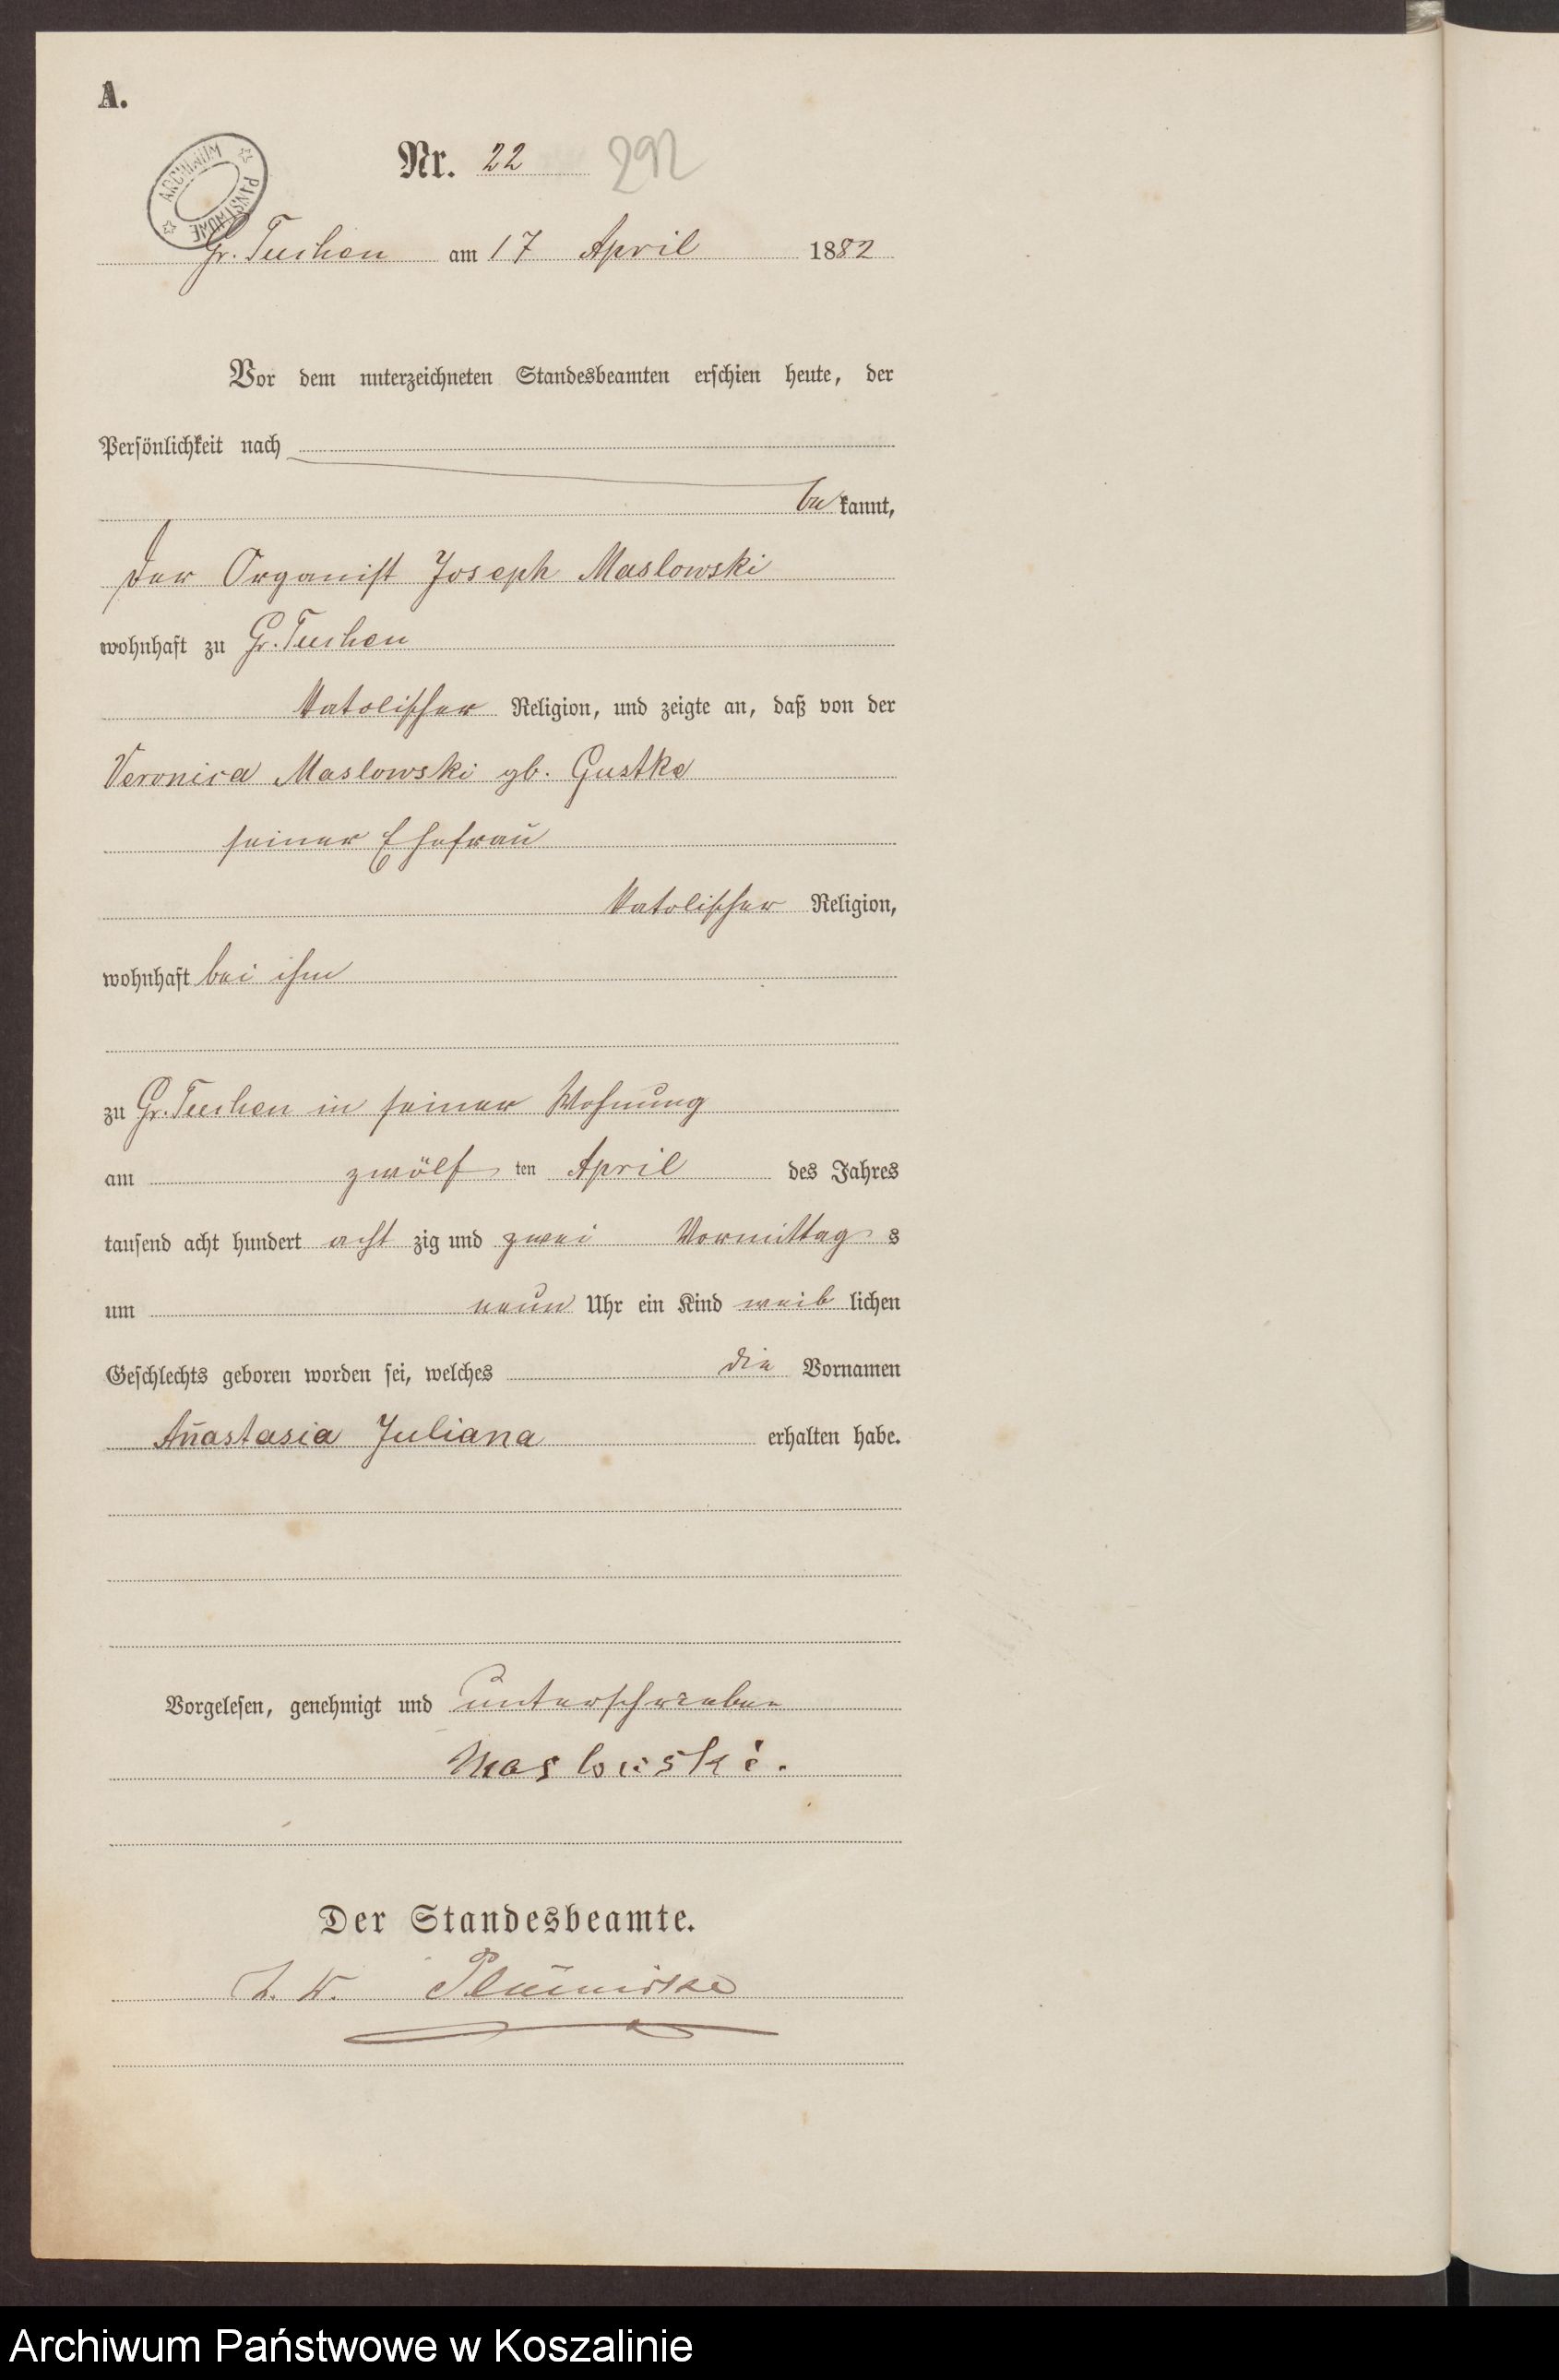 A.
ARCHIWUM PAŃSTWOWE
Nr. 22 292
Gr. Tuchen am 17 April 1882
Vor dem unterzeichneten Standesbeamten erschien heute, der
Persönlichkeit nach
be kannt,
der Organist Joseph Maslowski
wohnhaft zu Gr. Tuchen
katolischer Religion, und zeigte an, daß von der
Veronica Maslowski gb. Gustke
seiner Ehefrau
katolischer Religion,
wohnhaft bei ihm
zu Gr. Tuchen in seiner Wohnung
am zwölf ten April des Jahres
tausend acht hundert acht zig und zwei Vormittag s
um neun Uhr ein Kind weib lichen
Geschlechts geboren worden sei, welches die Vornamen
Anastasia Juliana erhalten habe.
Vorgelesen, genehmigt und unterschrieben
Maslowski.
Der Standesbeamte.
Archiwum Państwowe w Koszalinie